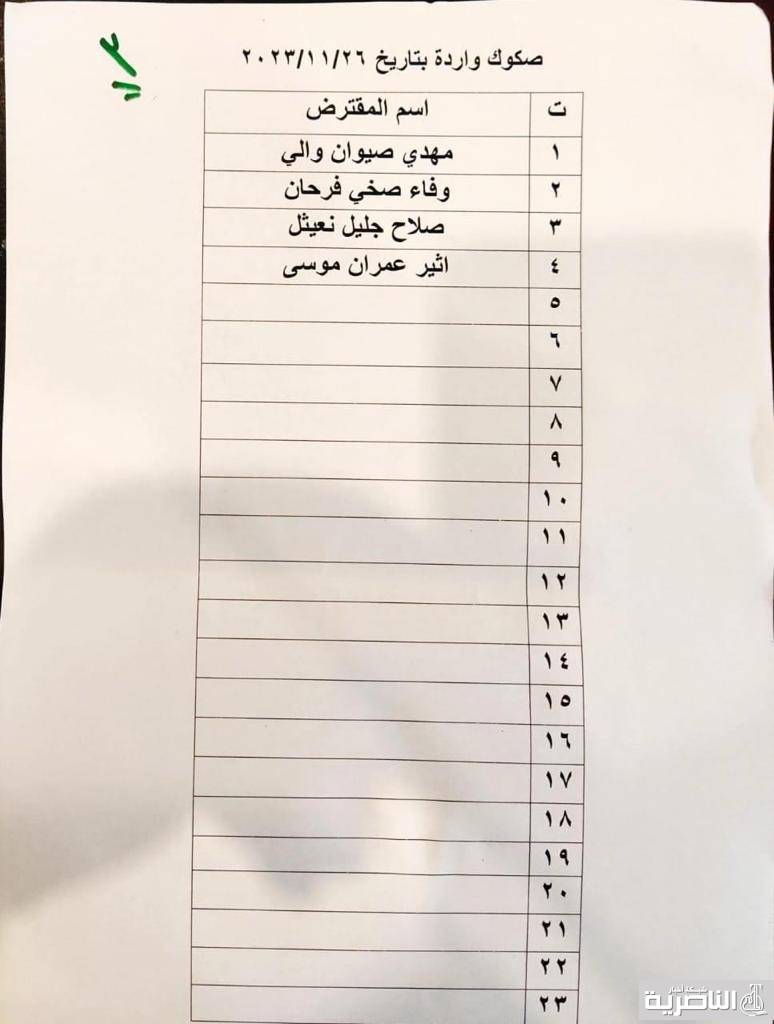 صكوك واردة بتاريخ ٢٠٢٣/١١/٢٦
ت اسم المقترض
١ مهدي صيوان والي
٢ وفاء صخي فرحان
٣ صلاح جليل نعيثل
٤ اثير عمران موسى
٥
٦
٧
٨
٩
١٠
١١
١٢
١٣
١٤
١٥
١٦
١٧
١٨
١٩
٢٠
٢١
٢٢
٢٣
شبكة أخبار
الناصرية